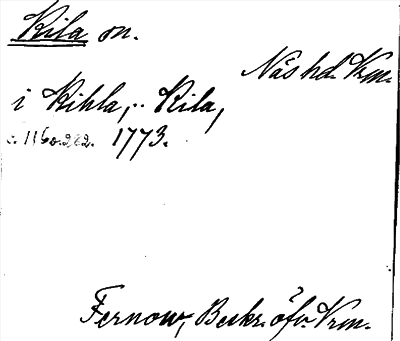 Kila on.
Näs hd. Vrm.
i Kihla, .. Kila,
s. 116 o. 282. 1773.
Fernow, Beskr. öfv. Vrm.